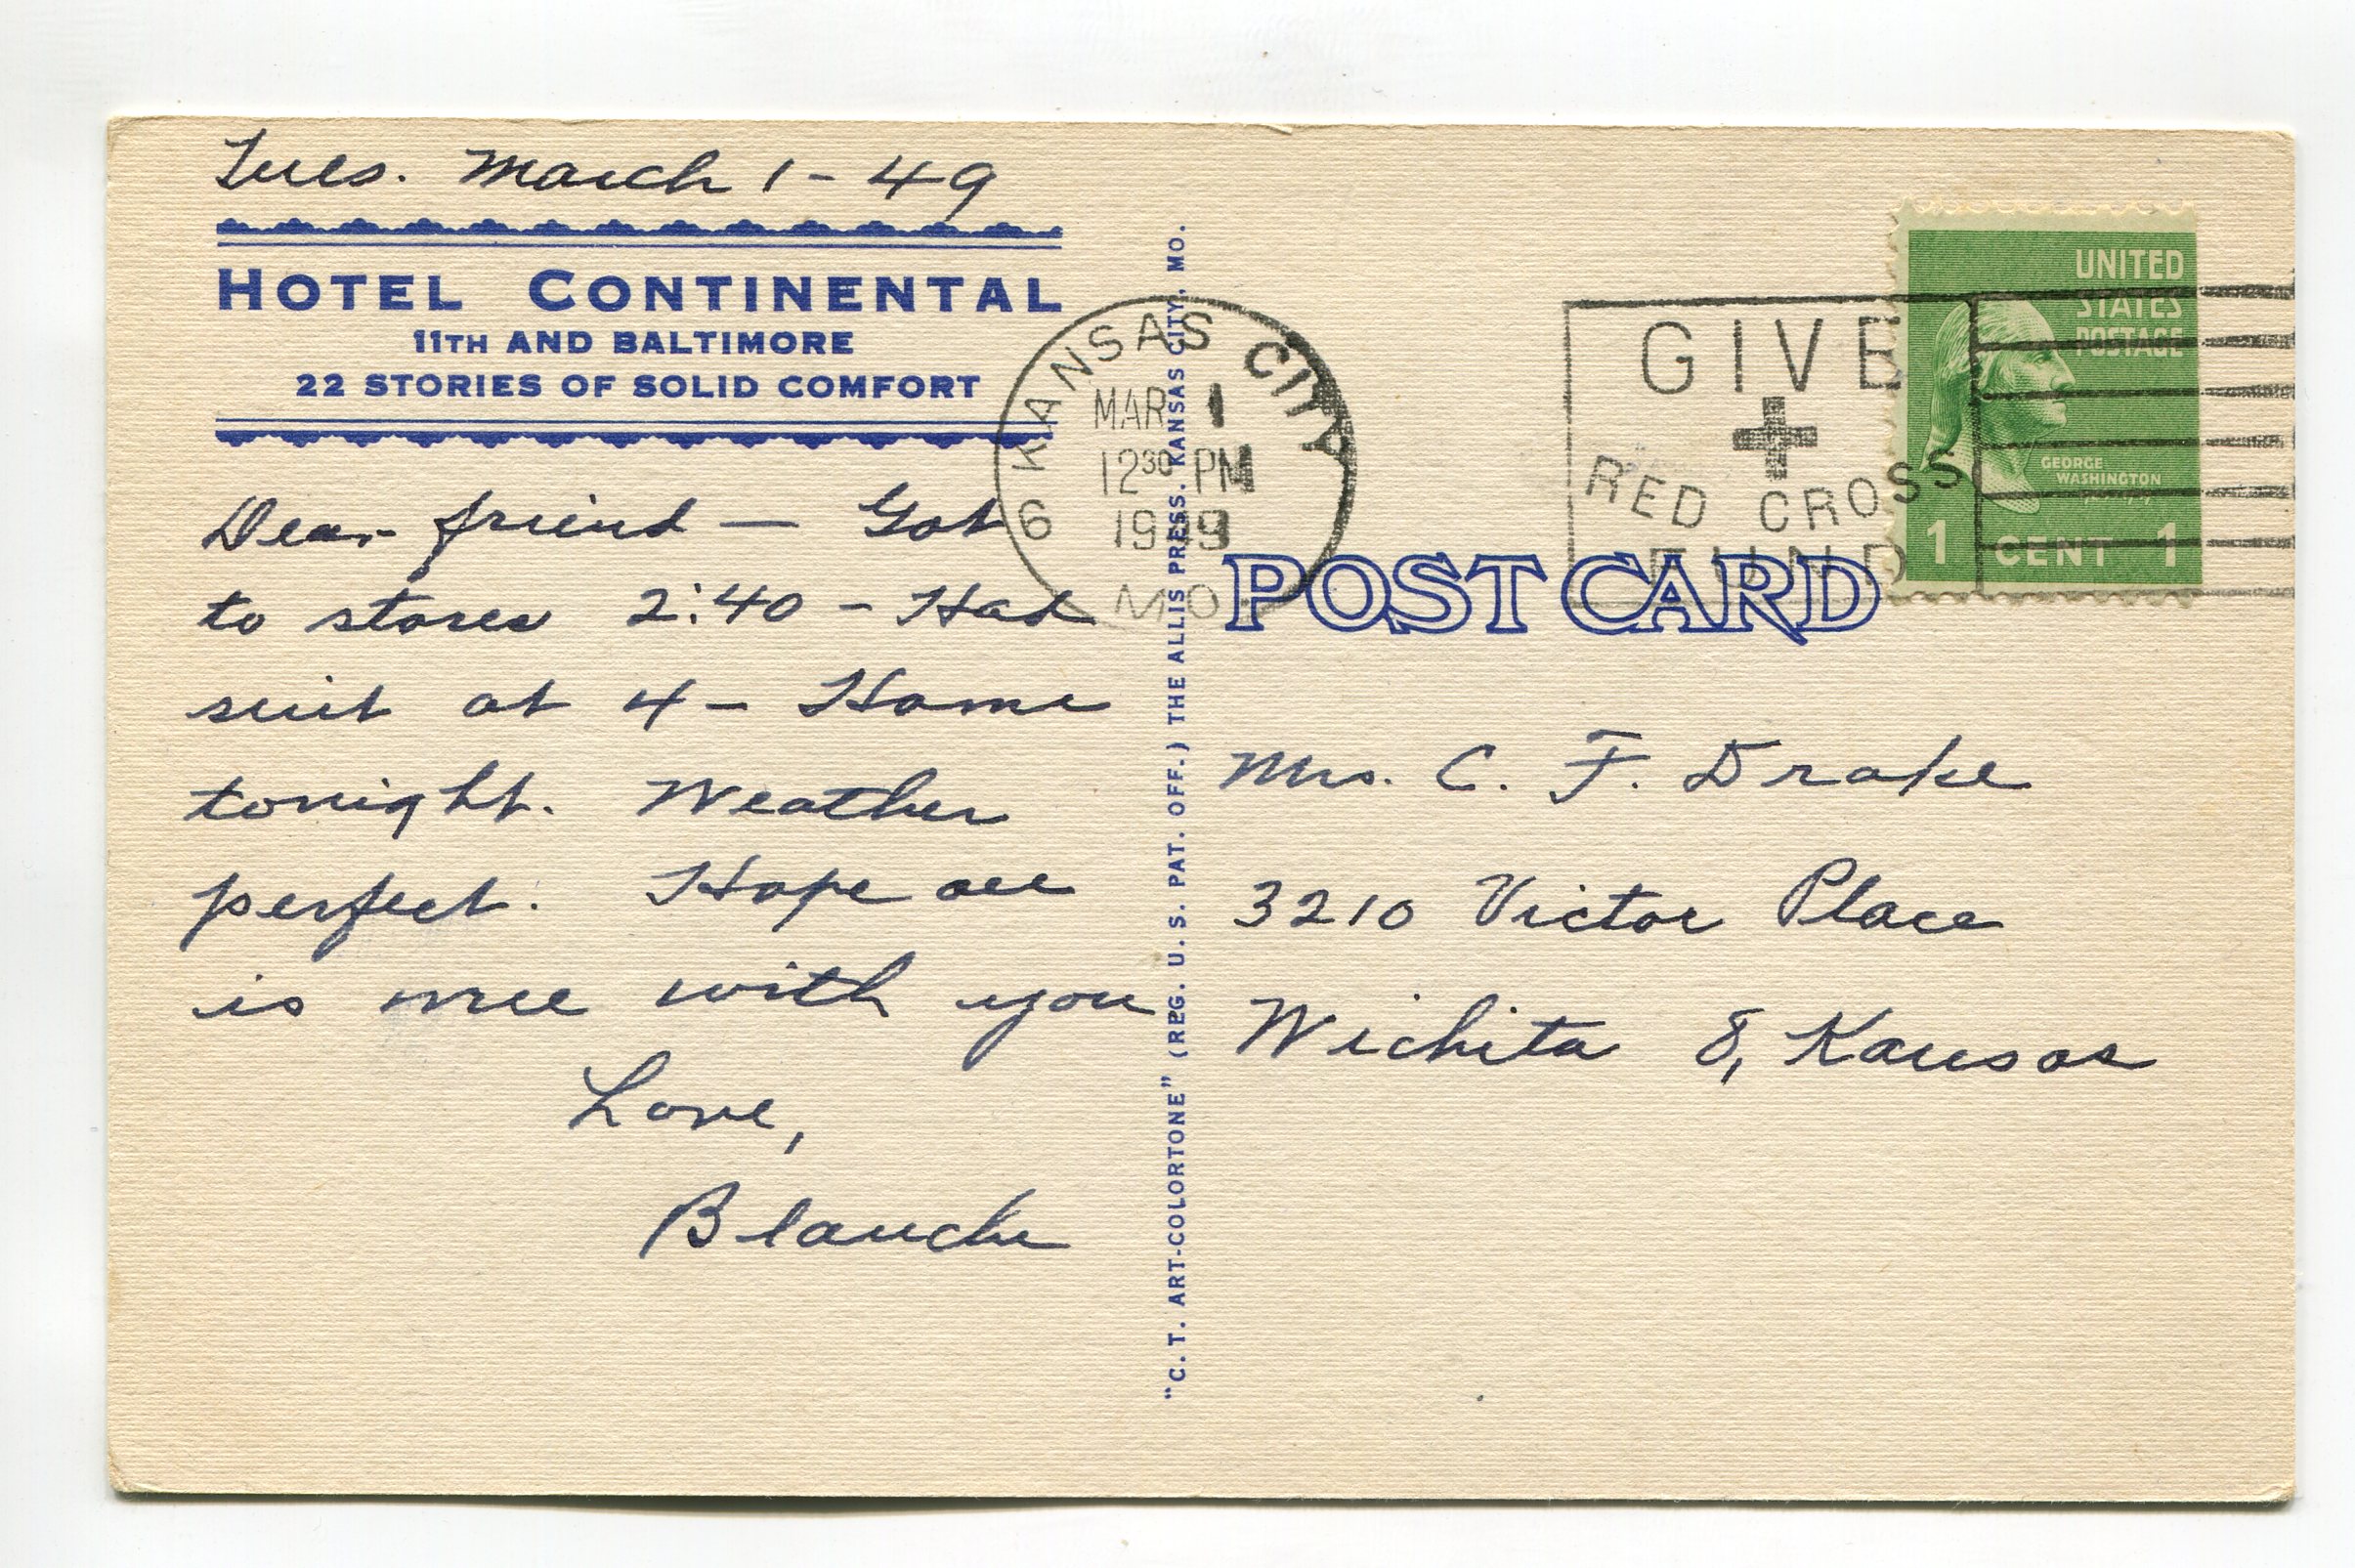 Tues. March 1 - 49
HOTEL CONTINENTAL
11TH AND BALTIMORE
22 STORIES OF SOLID COMFORT
Dear friend — Got
to stores 2:40 - Had
suit at 4 - Home
tonight. Weather
perfect. Hope all
is nice with you
Love,
Blanche
"C. T. ART-COLORTONE" (REG. U. S. PAT. OFF.) THE ALLIS PRESS. KANSAS CITY, MO.
6 KANSAS CITY
MAR 1
12 30 PM
1949
MO.
GIVE
RED CROSS
FUND
UNITED
STATES
POSTAGE
GEORGE
WASHINGTON
1 CENT 1
POST CARD
Mrs. C. F. Drake
3210 Victor Place
Wichita 8, Kansas